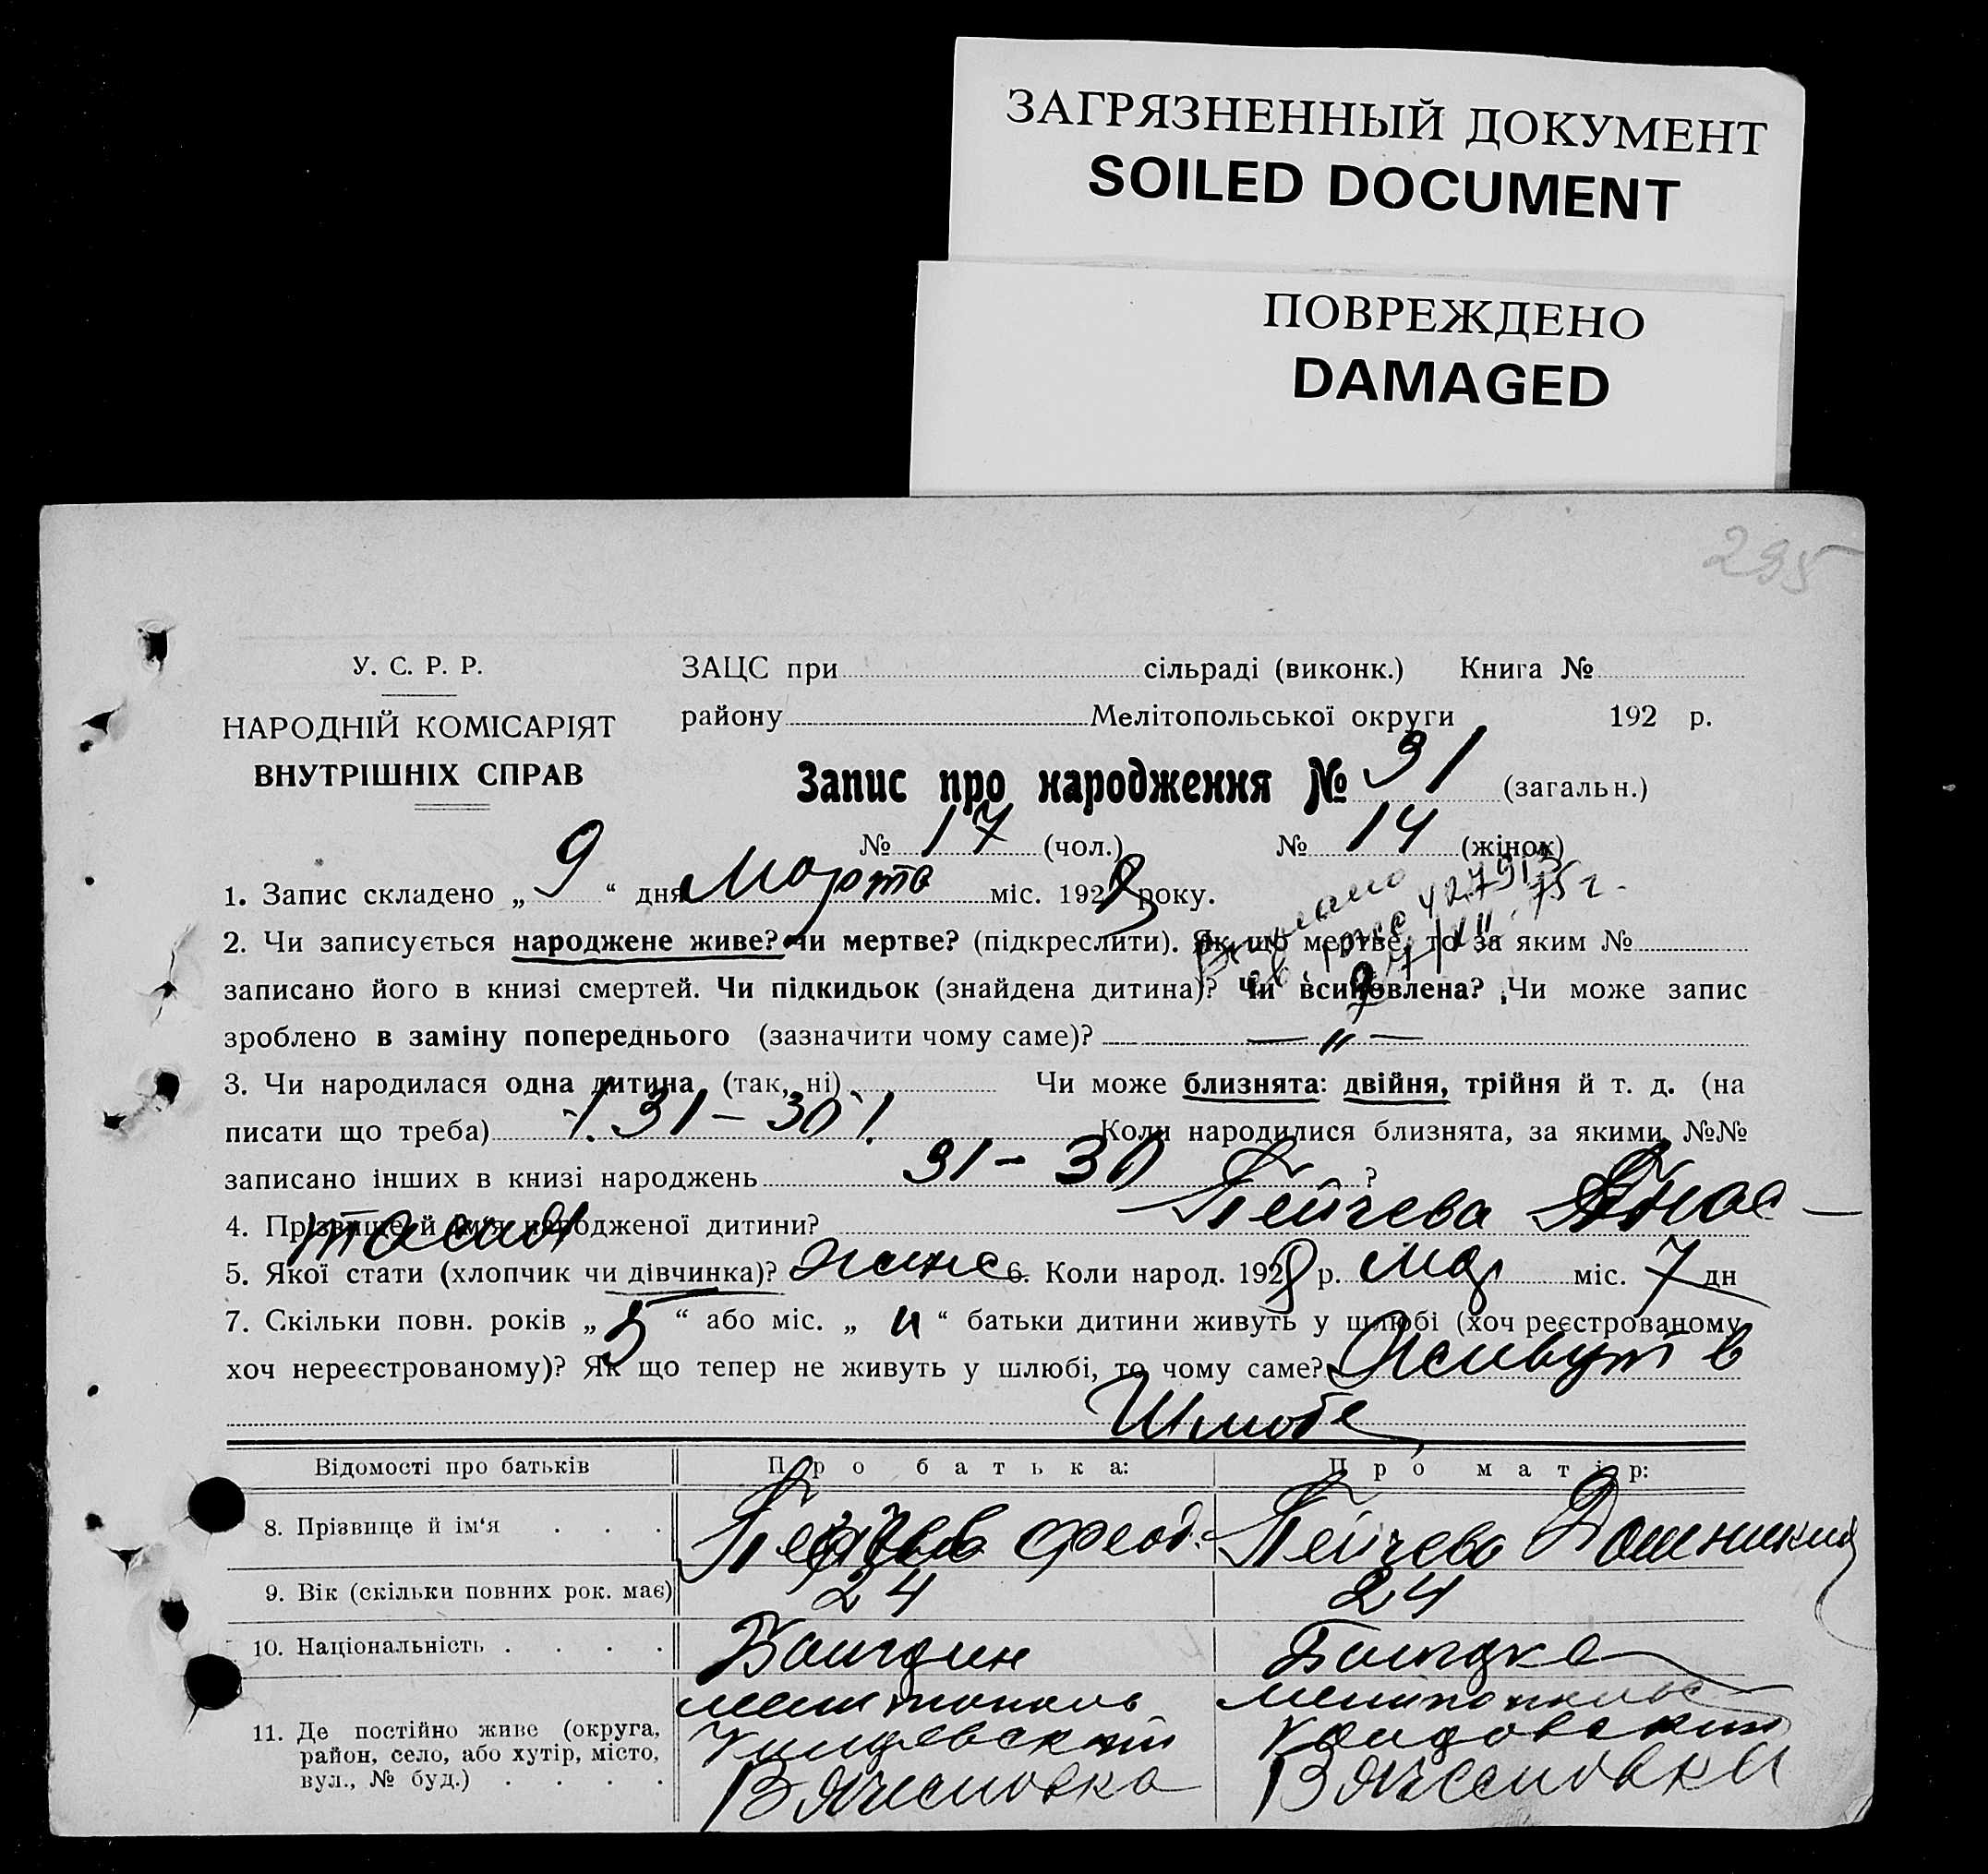 ЗАГРЯЗНЕННЫЙ ДОКУМЕНТ
SOILED DOCUMENT
ПОВРЕЖДЕНО
DAMAGED
295
У. С. Р. Р.
НАРОДНІЙ КОМІСАРІЯТ
ВНУТРІШНІХ СПРАВ
ЗАЦС при сільраді (виконк.) Книга №
району Мелітопольської округи 192 р.
Запис про народження № 31 (загальн.)
№ 17 (чол.) № 14 (жінок)
1. Запис складено „ 9 “ дня Марта міс. 1928 року.
2. Чи записується народжене живе? чи мертве? (підкреслити). Як що мертве, то за яким №
записано його в книзі смертей. Чи підкидьок (знайдена дитина)? Чи всиновлена? Чи може запис
зроблено в заміну попереднього (зазначити чому саме)? — „ —
3. Чи народилася одна дитина (так, ні) Чи може близнята: двійня, трійня й т. д. (на
писати що треба) 31 – 30 Коли народилися близнята, за якими №№
записано інших в книзі народжень 31 – 30 ?
4. Прізвище й ім'я народженої дитини? Пейчева Анас–
тасия
5. Якої стати (хлопчик чи дівчинка)? жінс 6. Коли народ. 1928 р. Мар міс. 7 дн
7. Скільки повн. років „ 5 “ або міс. „ и “ батьки дитини живуть у шлюбі (хоч реєстрованому,
хоч нереєстрованому)? Як що тепер не живуть у шлюбі, то чому саме? Живут в
Шлюбе
Відомості про батьків Про батька: Про матір:
8. Прізвище й ім'я . . . Пейчев Феод. Пейчева Домникия
9. Вік (скільки повних рок. має) 24 24
10. Національність . . . . Болгарин Болгарка
11. Де постійно живе (округа, район, село, або хутір, місто, вул., № буд.) . . . .
Мелитополь Мелитополь
Вячесловка Вячесловка